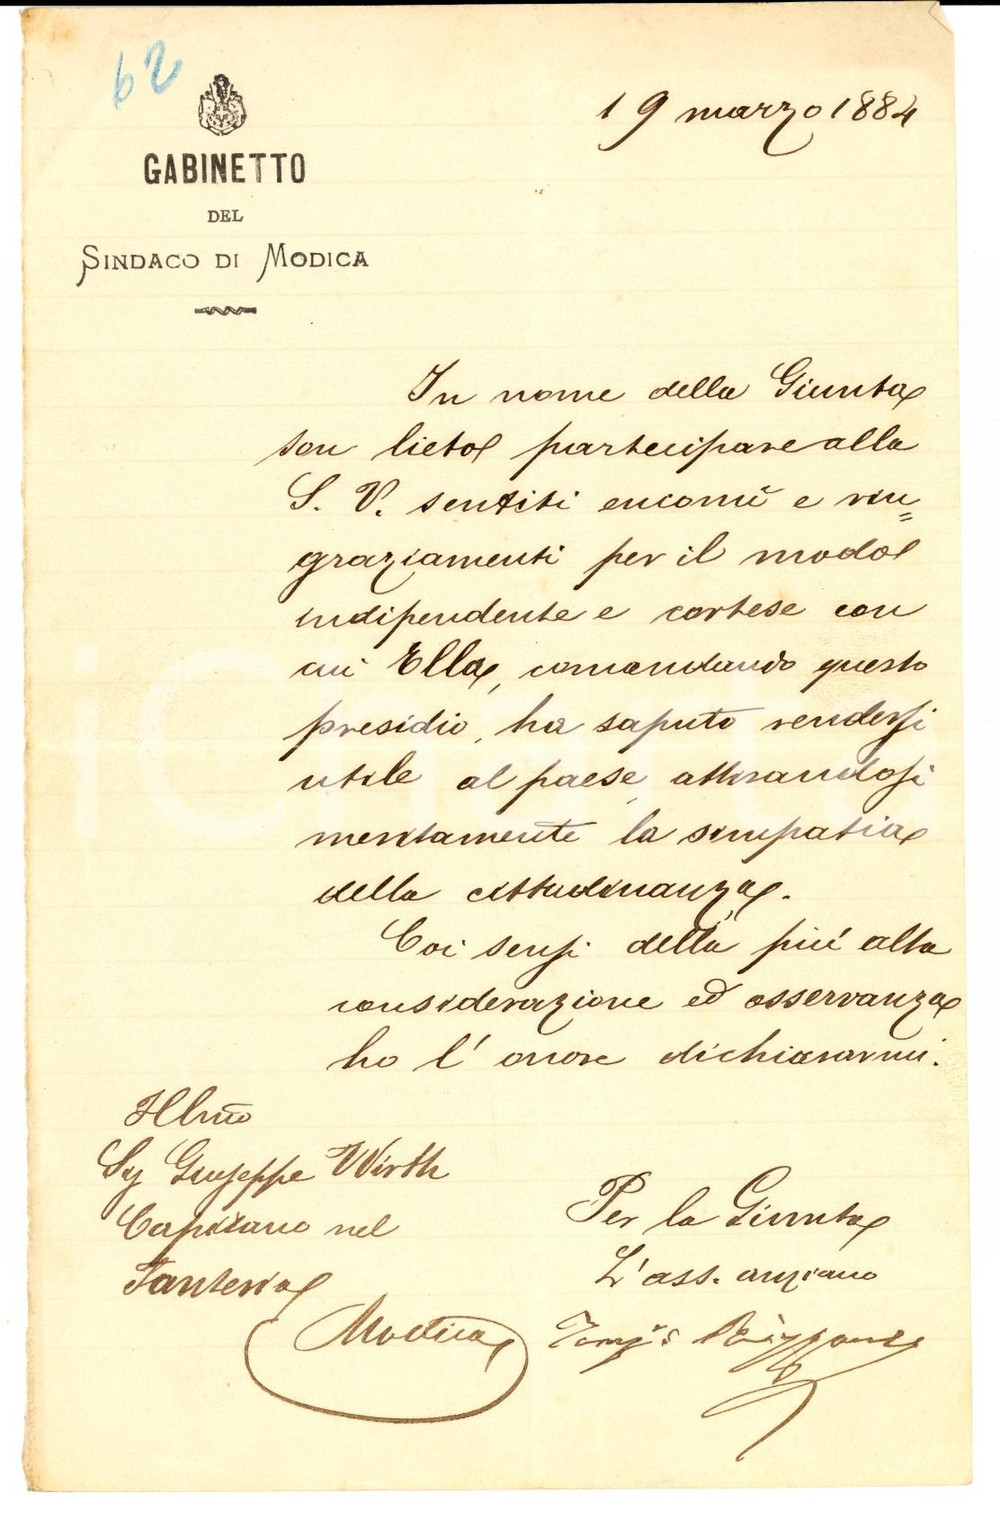 62
GABINETTO
DEL
SINDACO DI MODICA
19 marzo 1884
In nome della Giunta
son lieto partecipare alla
S. V. sentiti encomî e rin=
graziamenti per il modo
indipendente e cortese con
cui Ella, comandando questo
presidio, ha saputo rendersi
utile al paese attirandosi
meritamente la simpatia
della cittadinanza.
Coi sensi della più alta
considerazione ed osservanza
ho l'onore dichiararmi.
Illmo
Sg Giuseppe Wirth
Capitano nel
Fanteria
Modica
Per la Giunta
L'ass. anziano